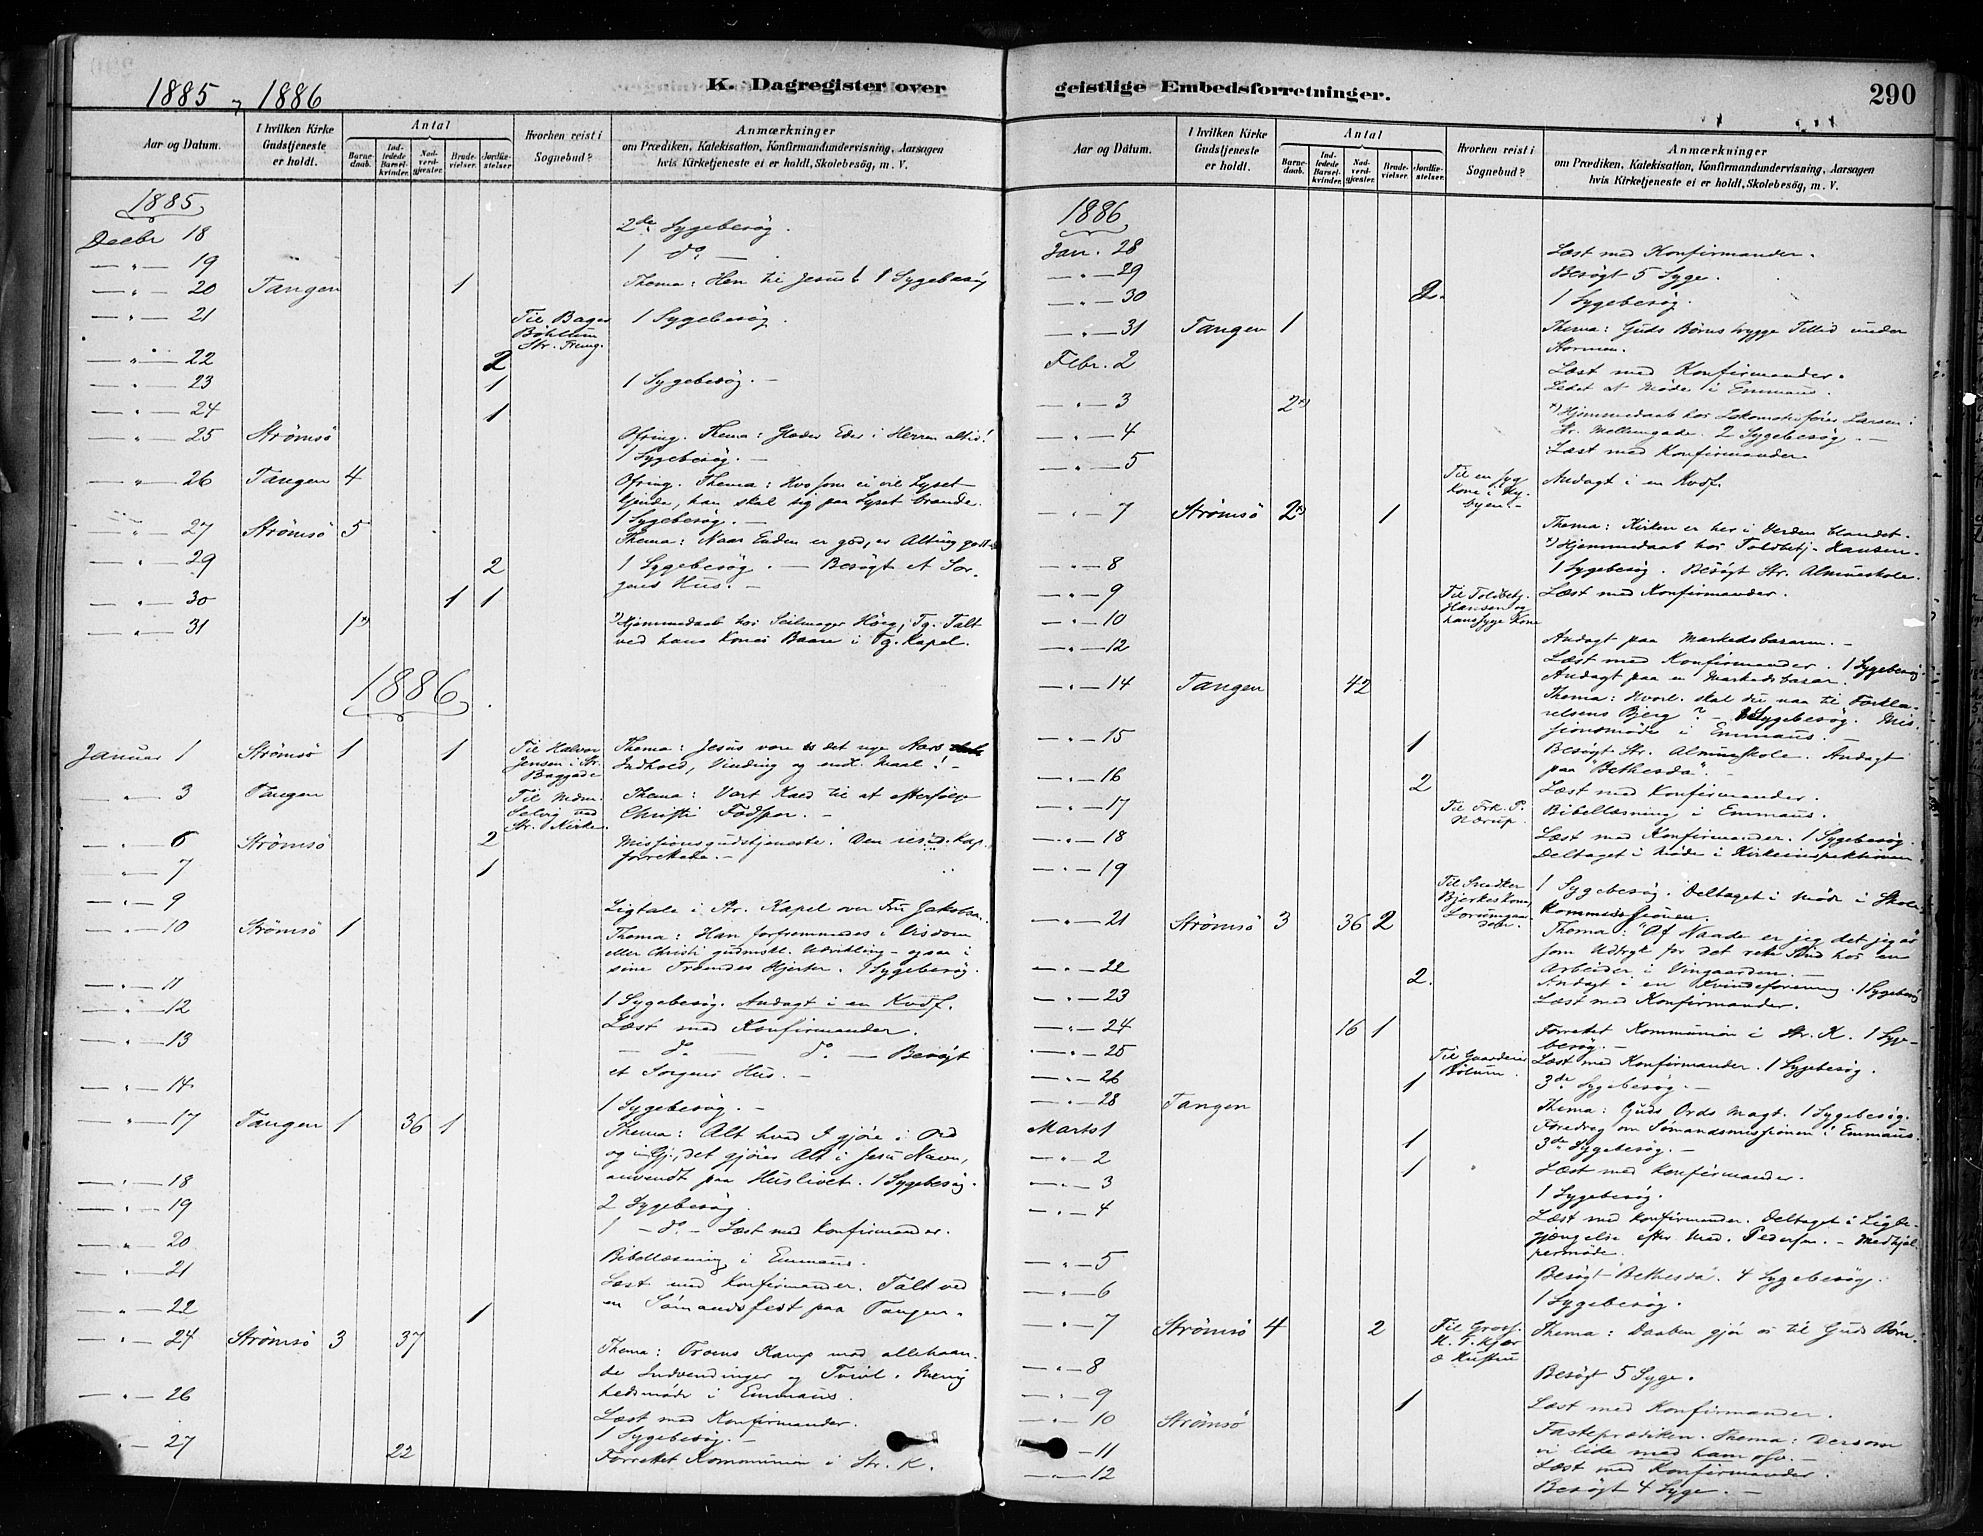 1885, 1886
K. Dagregister over
Aar og Datum.
I hvilken Kirke Gudstjeneste er holdt.
Antal
Barne-daab.
Ind-ledede Barsel-kvinder.
Nad-verd-gjæster.
Brude-vielser.
Jordfæ-stelser
Hvorhen reist i Sognebud?
Anmærkninger
om Prædiken, Katekisation, Konfirmandundervisning, Aarsagen
hvis Kirketjeneste ei er holdt, Skolebesøg, m. V.
1885
Decbr 18 2de Sygebesøg.
— " — 19 1 do —
— " — 20 Tangen 1 Thema: Hen til Jesus! 1 Sygebesøg
— " — 21 Til Bager 1 Sygebesøg.
Str.
— " — 22 2
— " — 23 1 1 Sygebesøg. —
— " — 24 1
— " — 25 Strømsø Ofring. Thema: Glæder Eder i Herren altid!
1 Sygebesøg. —
" — 26 Tangen 4 Ofring. Thema: Hvo som ei vil Lyset
han skal sig paa Lyset brænde.
1 Sygebesøg. —
" — 27 Strømsø 5 Thema: Naar Enden er god, er Alting godt
— " — 29 2 1 Sygebesøg. — Besøgt et Sor-
gens Hus. —
— " — 30 1 1
— " — 31 1*) *) Hjemmedaab hos Seilmager Høeg, Tg. Talt
ved hans Kones Baare i Tg. Kapel.
1886
Januar 1 Strømsø 1 1 Til Halvor Thema: Jesus vore det nye Aars
Jensen i Str. Indhold, Vinding og endl. Maal! —
Baggade
" — 3 Tangen Til Thema: Vort Kald til at efterfølge
ved Christi Fodspor. —
Str. Kirke
— " — 6 Strømsø 2 Missionsgudstjeneste. Den resid. Kap.
forrettede. —
— " — 7 1
— " — 9 Ligtale i Str. Kapel over Fru Jakobsen.
— " — 10 Strømsø 1 Thema: Han forfremmedes i Visdom
eller Christi Udvikling — ogsaa i
sine Troendes Hjerter. 1 Sygebesøg.
— " — 11
— " — 12 1 Sygebesøg. Andagt i en Kvdf.
Læst med Konfirmander.
— " — 13 — do — do — Besøgt
et Sorgens Hus. —
— " — 14 1 Sygebesøg. —
— " — 17 Tangen 1 36 1 Thema: Alt hvad I gjøre i Ord
og i Gj., det gjører Alt i Jesu Navn,
anvendt paa Huslivet. 1 Sygebesøg.
— " — 18 2 Sygebesøg.
— " — 19 1 — do — Læst med Konfirmander.
— " — 20 Bibellæsning i Emmaus.
— " — 21 Læst med Konfirmander. Talt ved
en Sømandsfest paa Tangen.
— " — 22 1
— " — 24 Strømsø 3 37 Thema: Troens Kamp mod allehaan-
de Indvendinger og Tvivl. Menig-
hedsmøde i Emmaus.
— " — 26 Læst med Konfirmander.
1 Sygebesøg. —
" — 27 22 Forrettet Kommunion i Str. K.
geistlige Embedsforretninger.
290
Aar og Datum.
I hvilken Kirke Gudstjeneste er holdt.
Antal
Barne-daab.
Ind-ledede Barsel-kvinder.
Nad-verd-gjæster.
Brude-vielser.
Jordfæ-stelser.
Hvorhen reist i Sognebud?
Anmærkninger
om Prædiken, Katekisation, Konfirmandundervisning, Aarsagen
hvis Kirketjeneste ei er holdt, Skolebesøg, m. V.
1886
Jan. 28 Læst med Konfirmander.
— " — 29 Besøgt 5 Syge.
— " — 30 2. 1 Sygebesøg.
— " — 31 Tangen 1 Thema: Guds Børns trygge Tillid under
Stormen.
Febr. 2 Læst med Konfirmander.
Ledet et Møde i Emmaus.
— " — 3 2*) *) Hjemmedaab hos Lokomotivfører Larsen i
— " — 4 Str. Mellemgade. 2 Sygebesøg. —
— " — 5 Læst med Konfirmander.
Til en syg Andagt i en Kvdf.
Kone i Ny-
byen. —
" — 7 Strømsø 2*) 1 Thema: Kirken er her i Verden blandet.
*) Hjemmedaab hos Toldbetj. Hansen.
— " — 8 1 Sygebesøg. Besøgt Str. Almueskole.
— " — 9 Til Toldbetj. Læst med Konfirmander.
— " — 10 Hansen og
hans syge Kone
— " — 12 Andagt paa Markedsbasaren. —
Læst med Konfirmander. 1 Sygebesøg.
— " — 14 Tangen 42 Andagt paa en Markedsbasar.
Thema: Hvorl. skal du naa til Forkla-
relsens Bjerg? — Sygebesøg. Mis-
sionsmøde i Emmaus.
— " — 15 1 Besøgt Str. Almueskole. Andagt
paa "Bethesda". —
— " — 16 2 Læst med Konfirmander.
— " — 17 Til Frk. P. Bibellæsning i Emmaus.
Nærup.
— " — 18 Læst med Konfirmander. 1 Sygebesøg.
Deltaget i Møde i Kirkeinspektionen
— " — 19 Til Snedker 1 Sygebesøg. Deltaget i Møde i Skole-
Bjerkes Kone, Kommissionen.
— " — 21 Strømsø 3 36 2 Thema: "Af Naade er jeg det jeg er"
som Udtryk for det rette Sind hos en
— " — 22 2. Arbeider i Vingaarden. —
Andagt i en Kvindeforening. 1 Sygebesøg
— " — 23 Læst med Konfirmander.
— " — 24 16 1 Forrettet Kommunion i Str. K. 1 Syge-
besøg. —
— " — 25 Til Læst med Konfirmander. 1 Sygebesøg.
— " — 26 1 3de Sygebesøg. —
— " — 28 Tangen Thema: Guds Ords Magt. 1 Sygebesøg.
Marts 1 1 Foredrag om Sømandsmissionen i Emmaus.
3de Sygebesøg. —
— " — 2 1 Læst med Konfirmander.
— " — 3 1 Sygebesøg.
— " — 4 Læst med Konfirmander. Deltaget i Ligbe-
gjængelse efter Mad. Pedersen. — Medhjæl-
permøde.
— " — 5 Besøgt "Bethesda". 4 Sygebesøg.
— " — 6 1 Sygebesøg.
— " — 7 Strømsø 4 2 Til Gross. Thema: Daaben gjør os til Guds Børn.
Kjær
& Hustru
— " — 8 Besøgt 5 Syge.
— " — 9 1 Læst med Konfirmander.
— " — 10 Strømsø Fasteprædiken. Thema: Dersom
vi lide med ham osv. —
— 11 Læst med Konfirmander.
— " — 12 Besøgt 4 Syge. —